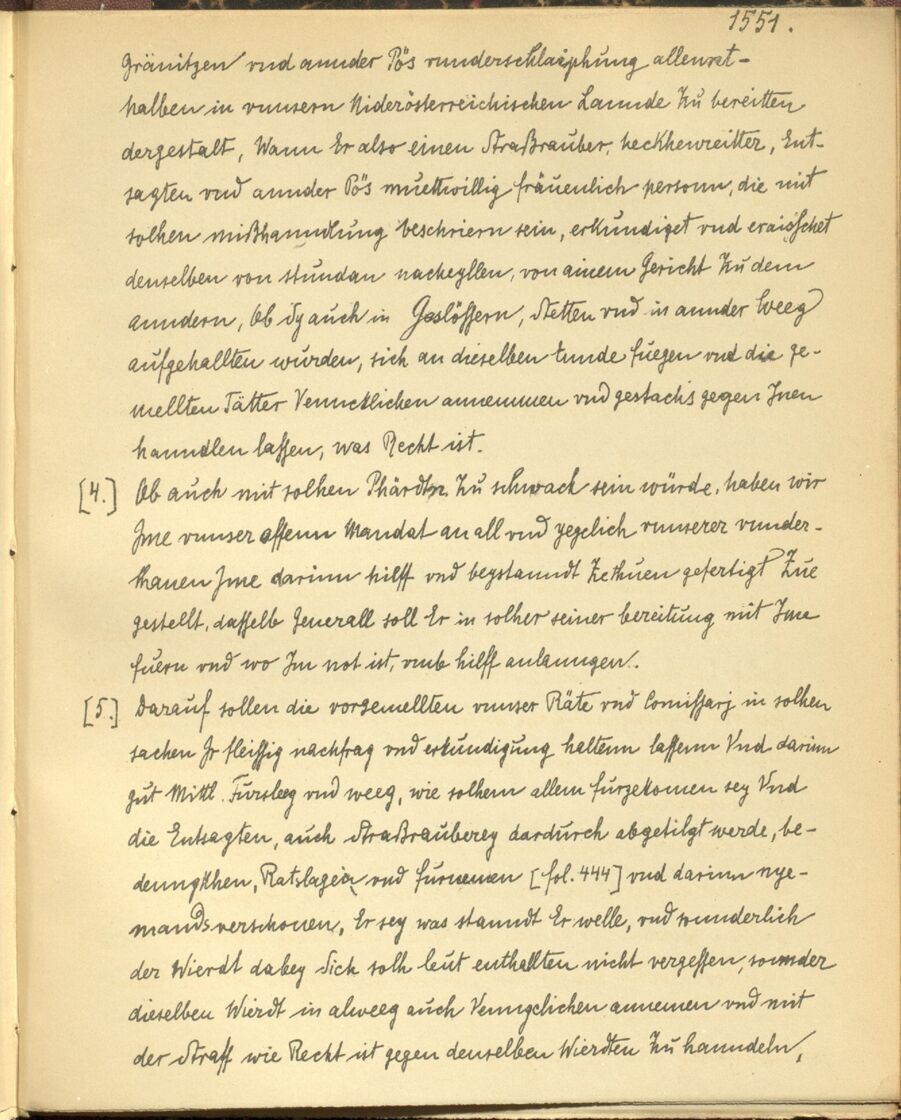 1551.
Gränitzen vnd annder Pös vunderschlaiphung allennt-
halben in vnnsern Niderösterreichischen Lannde Zu bereitten
dergestalt, Wann Er also einen Straßrauber, heckhenreitter, Ent-
sagten vnd annder Pös muettwillig fräuenlich personn, die mit
solhen mißhanndlung beschriern sein, erkundiget vnd eraisschet
denselben von stundan nacheyllen, von ainem Gericht Zu dem
anndern, Ob Sy auch in Geslössern, Stetten vnd in annder Weeg
aufgehallten wurden, sich an dieselben Ennde fuegen vnd die ge-
mellten Tätter Venncklichen annemmen vnd gestachs gegen Jnen
hanndlen lassen, was Recht ist.
[4.] Ob auch mit solhen Phärdtn Zu schwach sein würde, haben wir
Jme vnnser offenn Mandat an all vnd yegclich vnnserer vnnder-
thanen Jme darinn hilff vnd beystanndt Zethuen gefertigt Zue
gestellt, dasselb Generall soll Er in solher seiner bereitung mit Jme
fuern vnd wo Jm not ist, vmb hilff anlanngen.
[5.] Darauf sollen die vorgemellten vnnser Räte vnd Comissarj in solhen
sachen Jr fleissig nachfrag vnd erkundigung haltenn lassenn Vnd darinn
gut Mittl. Fürsleg vnd weeg, wie solhem allem furzekomen sey Vnd
die Entsagten, auch Straßrauberey dardurch abgetilgt werde, be-
denngkhen, Ratslagen vnd furnemen [fol. 444] vnd darinn nye-
mands verschonen, Er sey was stanndt Er welle, vnd sonnderlich
der Wierdt dabey Sich solh leut enthallten nicht vergessen, sonnder
dieselben Wierdt in alweeg auch Venngclichen annemen vnd mit
der Straff wie Recht ist gegen denselben Wierdten Zu hanndeln,